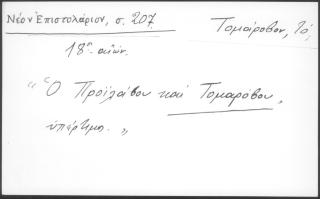 Νέον Ἐπιστολάριον, σ. 207.
Τομάροβον, Τό,
18ος αἰών.
"Ὁ Προϊλάβου καὶ Τομαρόβου,
ὑπέρτιμος."